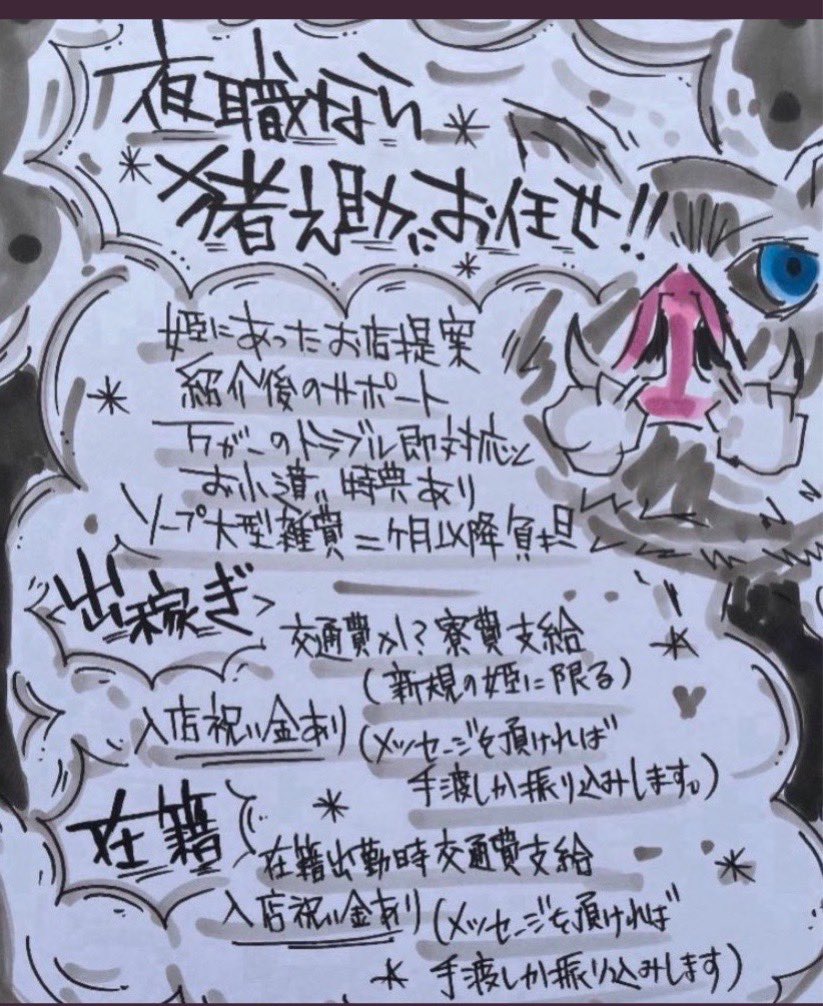 夜職なら
猪之助にお任せ!!
姫にあったお店提案
紹介後のサポート
万が一のトラブル即対応
お小遣い特典あり
ソープ大型雑費二ヶ月以降負担
出稼ぎ
交通費か!?寮費支給
(新規の姫に限る)
入店祝い金あり(メッセージを頂ければ
手渡しか振り込みします。)
在籍
在籍出勤時交通費支給
入店祝い金あり(メッセージを頂ければ
手渡しか振り込みします)